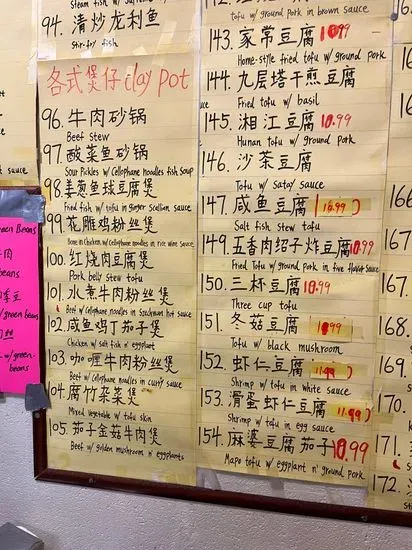 steam fish w/
94. 清炒龙利鱼
Stir-fry fish
各式煲仔 clay pot
96. 牛肉砂锅
Beef stew
97. 酸菜鱼砂锅
Sour Pickles w/ Cellophane noodles fish Soup
98. 姜葱鱼球豆腐煲
Fried fish w/ tofu in ginger scallion sauce
99. 花雕鸡粉丝煲
Bone in Chicken w/ Cellophane noodles in rice wine sauce
100. 红烧肉豆腐煲
Pork belly stew tofu
101. 水煮牛肉粉丝煲
Beef w/ Cellophane noodles in Szechuan hot sauce
102. 咸鱼鸡丁茄子煲
Chicken w/ salt fish n' eggplant
103. 咖喱牛肉粉丝煲
Beef w/ Cellophane noodles in curry sauce
104. 腐竹杂菜煲
Mixed Vegetable w/ tofu skin
105. 茄子金菇牛肉煲
Beef w/ golden mushrooms n' eggplants
tofu w/ ground pork in brown sauce
143. 家常豆腐 10.99
Home-style fried tofu w/ ground pork
144. 九层塔干煎豆腐
Fried tofu w/ basil
145. 湘江豆腐 10.99
Hunan tofu w/ ground pork
146. 沙茶豆腐
Tofu w/ Satay sauce
147. 咸鱼豆腐
Salt fish stew tofu
149. 五香肉绍子炸豆腐
Fried Tofu w/ ground pork in five flavor sauce
150. 三杯豆腐 10.99
Three cup tofu
151. 冬菇豆腐
Tofu w/ black mushroom
152. 虾仁豆腐 11.99
Shrimp w/ tofu in white sauce
153. 滑蛋虾仁豆腐 11.99
Shrimp w/ tofu in egg sauce
154. 麻婆豆腐茄子 10.99
Mapo tofu w/ eggplant n' ground pork
green Beans
牛肉
beans
w/ green beans
w/ green-
beans
166.
167.
168.
169.
170.
171.
172.